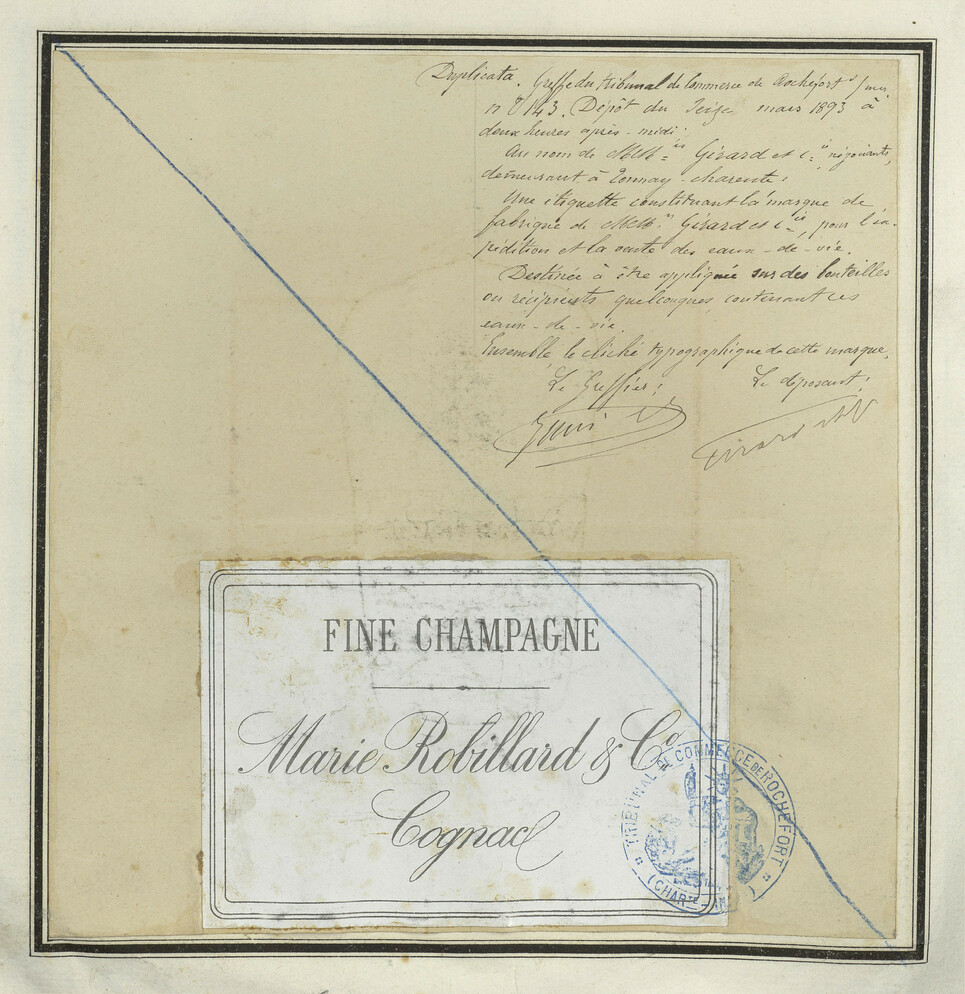 Duplicata. Greffe du tribunal de Commerce de Rochefort s/mer
n° 2143. Dépôt du Seize mars 1893 à
deux heures après-midi :
Au nom de MM.rs Girard et Cie, négociants,
demeurant à Tonnay-charente :
Une étiquette constituant la marque de
fabrique de MM.rs Girard et Cie, pour l'ex-
pédition et la vente des eaux-de-vie.
Destinée à être appliquée sur des bouteilles
ou récipients quelconques, contenant ces
eaux-de-vie.
Ensemble, le cliché typographique de cette marque.
Le Greffier, Le déposant,
Girard
FINE CHAMPAGNE
Marie Robillard & Co
Cognac
TRIBUNAL DE COMMERCE DE ROCHEFORT
(CHARTE-IN